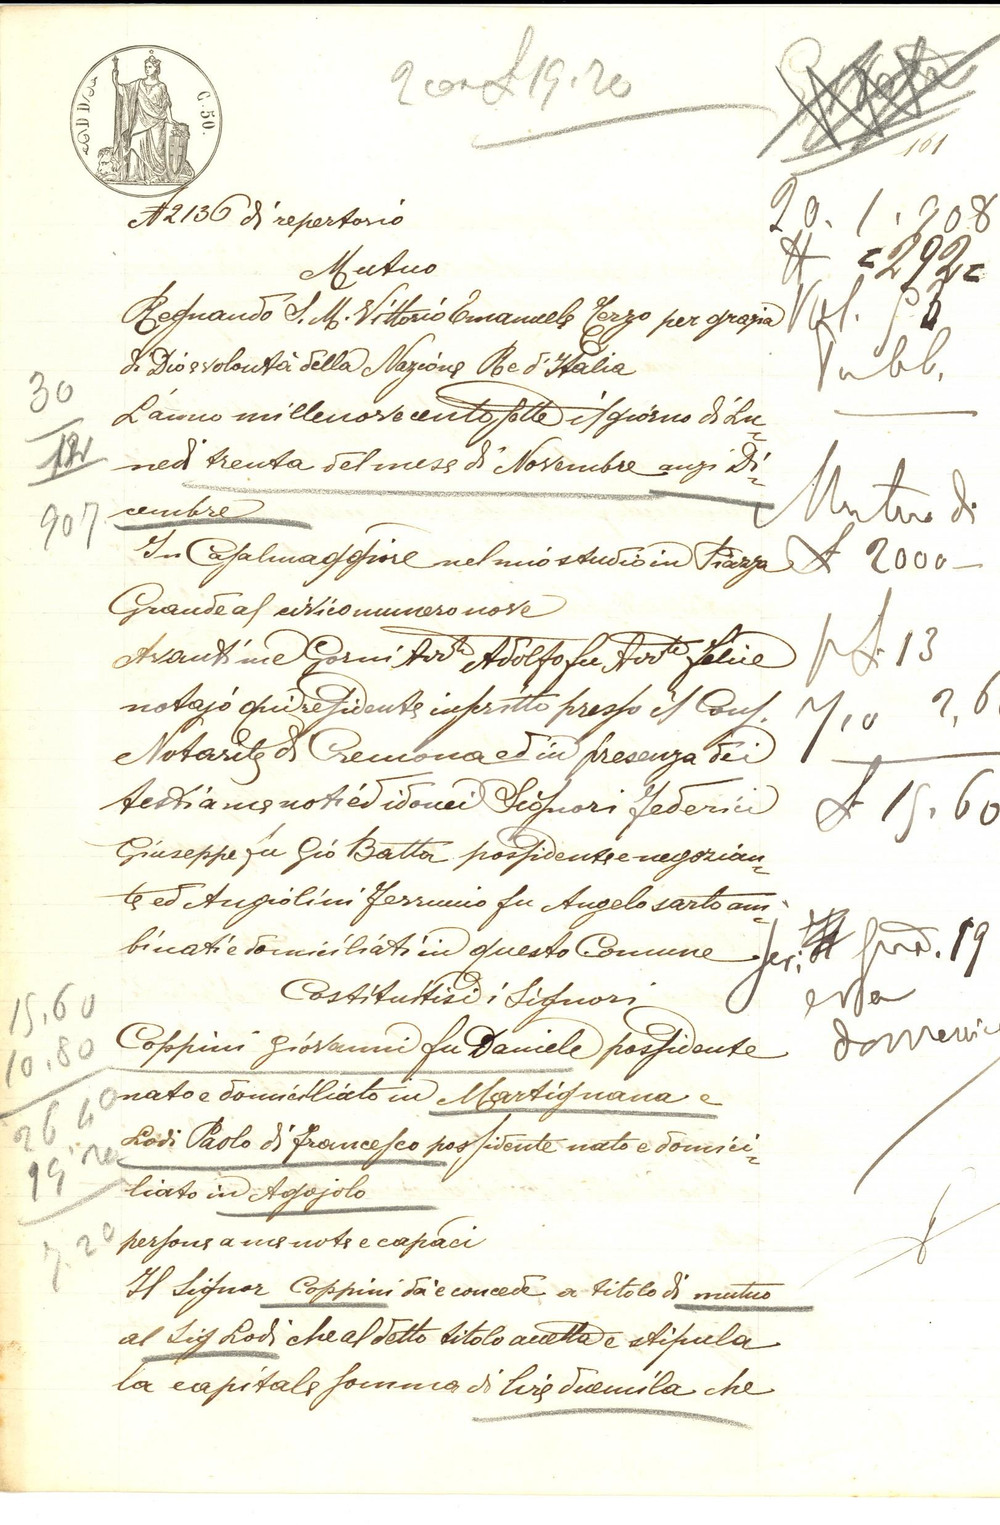 C. 50.
2 con £ 19.20
101
N 2136 di repertorio
Mutuo
Regnando S. M. Vittorio Emanuele Terzo per grazia
di Dio e volontà della Nazione Re d'Italia
L'anno millenovecentosette il giorno di Lu=
nedì trenta del mese di Novembre anzi Di=
cembre
In Casalmaggiore nel mio studio in Piazza
Grande al civico numero nove
Avanti me Gorni Avvte Adolfo fu Avvte Felice
notajo qui residente inscritto presso il Cons.
Notarile di Cremona ed in presenza dei
testi a me noti ed idonei Signori Federici
Giuseppe fu Gio Batta possidente e negozian=
te ed Angiolini Ferruccio fu Angelo sarto am=
bi nati e domiciliati in questo Comune
Costituitisi i Signori
Coppini Giovanni fu Daniele possidente
nato e domiciliato in Martignana e
Lodi Paolo di Francesco possidente nato e domici=
liato in Agojolo
persone a me note e capaci
Il Signor Coppini dà e concede a titolo di mutuo
al Sig Lodi che al detto titolo accetta e stipula
la capitale somma di lire duemila che
30
12
907
15,60
10.80
26 40
19.20
7.20
20. 1. 908
N =292=
Vol. 53
Pubb.
Mutuo di
£ 2000 -
£ 13
2,60
£ 15.60
19